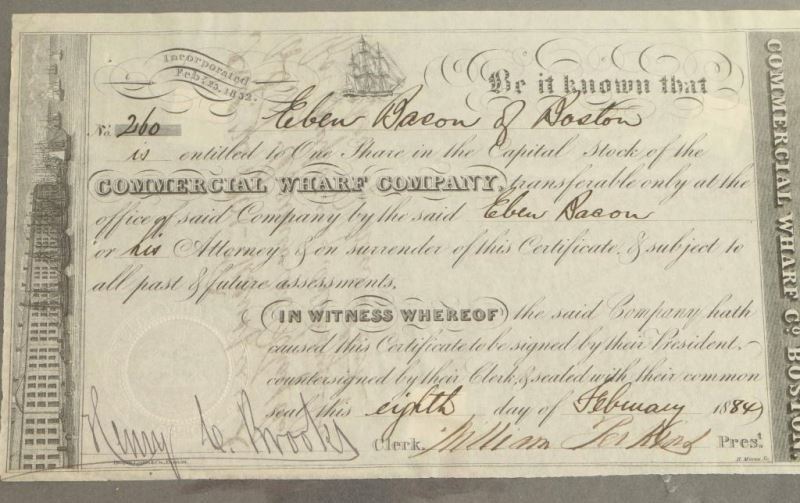 Incorporated
Feb. 25, 1832.
Be it known that
No. 260
Eben Bacon of Boston
is entitled to One Share in the Capital Stock of the
COMMERCIAL WHARF COMPANY, transferable only at the
office of said Company by the said Eben Bacon
or his Attorney, & on surrender of this Certificate, & subject to
all past & future assessments.
IN WITNESS WHEREOF the said Company hath
caused this Certificate to be signed by their President,
countersigned by their Clerk, & sealed with their common
seal this eighth day of February 1884
Henry C. Brooks Clerk. William Perkins Prest.
COMMERCIAL WHARF Co. BOSTON.